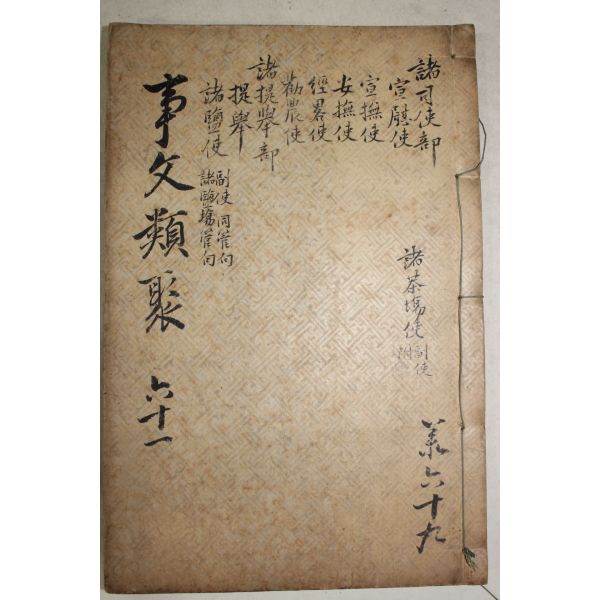 諸司使部
宣慰使
宣撫使
安撫使
經畧使
勸農使
諸提舉部
提舉
諸鹽使 副使 同管勾
諸鹽塲管勾
諸茶塲使 副使
附
事文類聚 六十一
共六十九